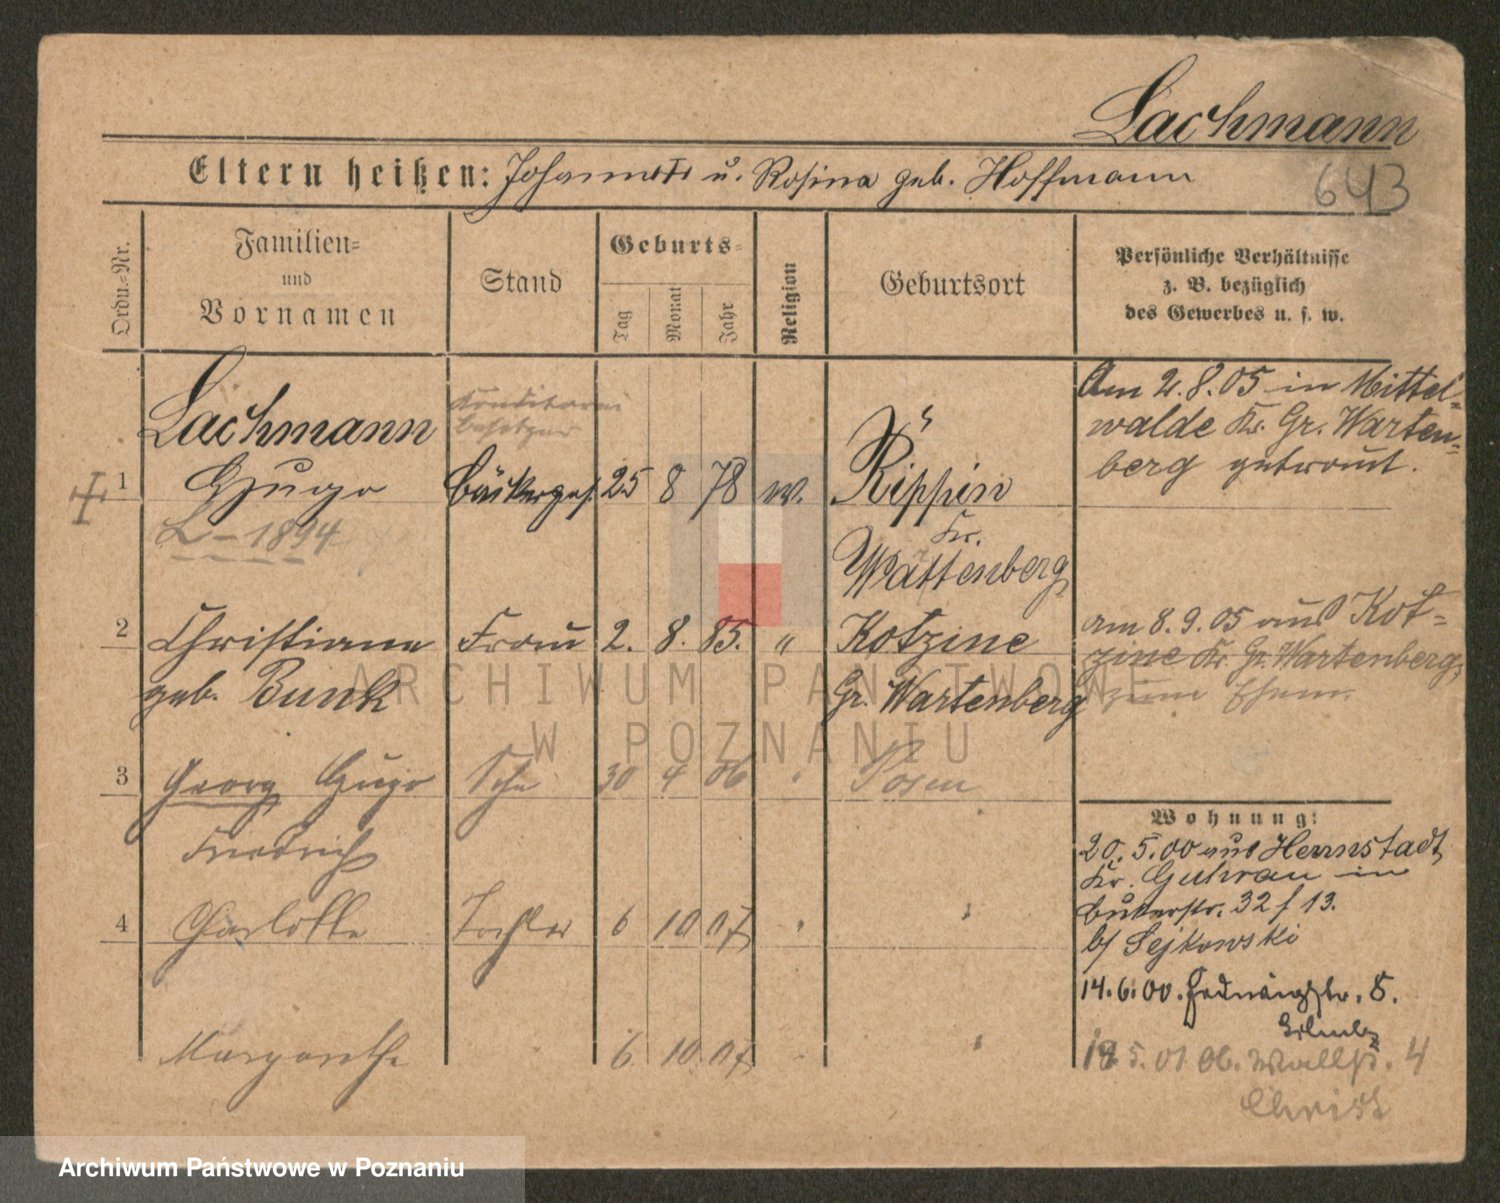 Lachmann
Eltern heißen: Johann u. Rosina geb. Hoffmann
643
Ordn.-Nr.
Familien-
und
Vornamen
Stand
Geburts-
Tag
Monat
Jahr
Religion
Geburtsort
Persönliche Verhältnisse
z. B. bezüglich
des Gewerbes u. s. w.
Lachmann
Konditorei
besitzer
1 Hugo Bäckerges. 25 8 78 ev. Rippin
L-1894
Kr.
Wartenberg
Am 2.8.05 in Mittel-
walde Kr. Gr. Warten-
berg getraut.
2 Christiane Frau 2. 8. 85. " Kotzine
geb. Bunk Gr. Wartenberg
am 8.9.05 aus Kot-
zine Kr. Gr. Wartenberg
zum Ehem.
3 Georg Hugo Sohn 30 4 06 " Posen
Friedrich
4 Charlotte Tochter 6 10 07 " "
Margarethe " 6 10 07 " "
Wohnung:
20.5.00 aus Herrnstadt
Kr. Guhrau in
Bukerstr. 32 f 13.
b/ Sejkowski
14.6.00. Hedwigstr. 8.
18.5.01 06. Wallstr. 4
Christ
ARCHIWUM PAŃSTWOWE
W POZNANIU
Archiwum Państwowe w Poznaniu